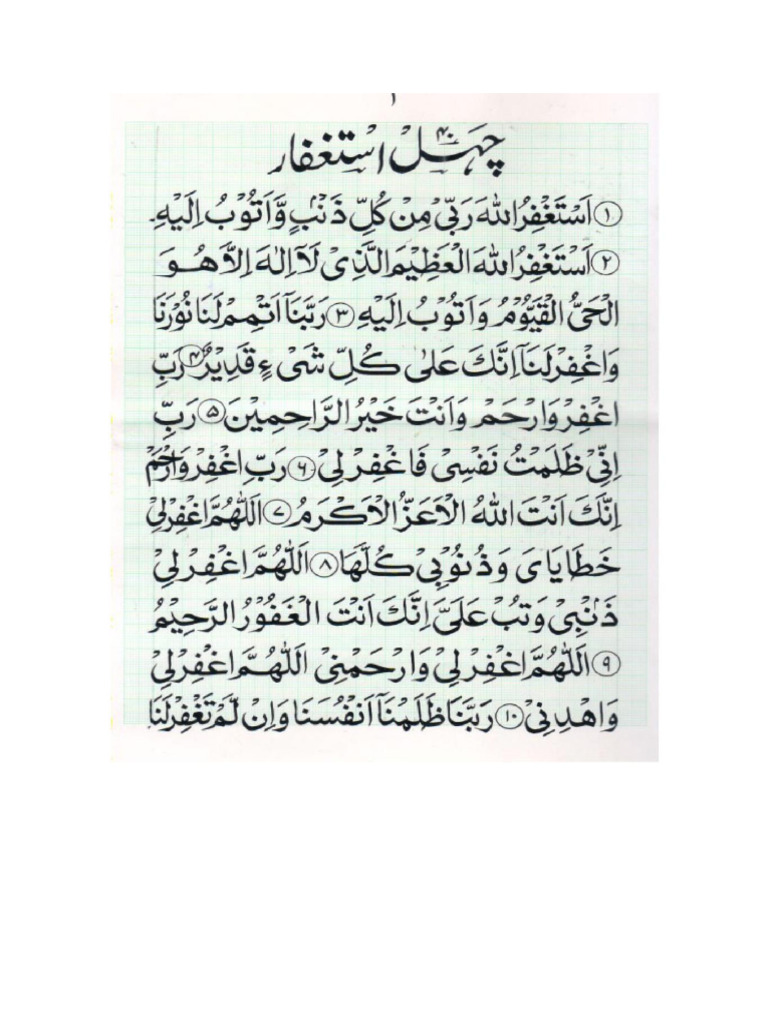 ۱
چہل ۴۰ استغفار
۱ اَسْتَغْفِرُاللهَ رَبِّیْ مِنْ کُلِّ ذَنْۢبٍ وَّاَتُوْبُ اِلَیْهِ۔
۲ اَسْتَغْفِرُاللهَ الْعَظِیْمَ الَّذِیْ لَآ اِلٰهَ اِلَّا هُوَ
الْحَیُّ الْقَیُّوْمُ وَاَتُوْبُ اِلَیْهِ ۳ رَبَّنَآ اَتْمِمْ لَنَا نُوْرَنَا
وَاغْفِرْلَنَآ اِنَّکَ عَلٰی کُلِّ شَیْءٍ قَدِیْرٌ ۴ رَبِّ
اغْفِرْوَارْحَمْ وَاَنْتَ خَیْرُ الرَّاحِمِیْنَ ۵ رَبِّ
اِنِّیْ ظَلَمْتُ نَفْسِیْ فَاغْفِرْلِیْ ۶ رَبِّ اغْفِرْ وَارْحَمْ
اِنَّکَ اَنْتَ اللهُ الْاَعَزُّ الْاَکْرَمُ ۷ اَللّٰهُمَّ اغْفِرْلِیْ
خَطَایَایَ وَذُنُوْبِیْ کُلَّهَا ۸ اَللّٰهُمَّ اغْفِرْلِیْ
ذَنْۢبِیْ وَتُبْ عَلَیَّ اِنَّکَ اَنْتَ الْغَفُوْرُ الرَّحِیْمُ
۹ اَللّٰهُمَّ اغْفِرْلِیْ وَارْحَمْنِیْ اَللّٰهُمَّ اغْفِرْلِیْ
وَاهْدِنِیْ ۱۰ رَبَّنَا ظَلَمْنَآ اَنْفُسَنَا وَاِنْ لَّمْ تَغْفِرْلَنَا